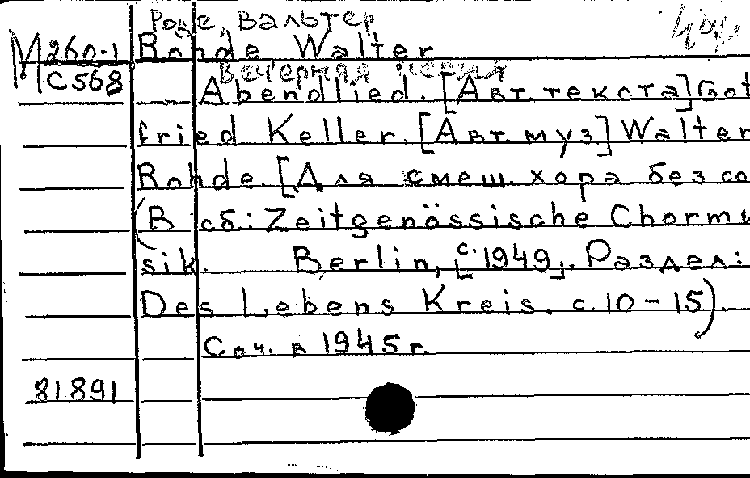 Роде, Вальтер
М 260-1 Rohde Walter
С568 Вечерняя песня
Abendlied. [Авт. текста] Got
fried Keller. [Авт. муз.] Walter
Rohde. [Для смеш. хора без со
(В сб.: Zeitgenössische Chormu
sik. Berlin, [с. 1949]. Раздел:
Des Lebens Kreis. с. 10-15).
Соч. в 1945 г.
81891